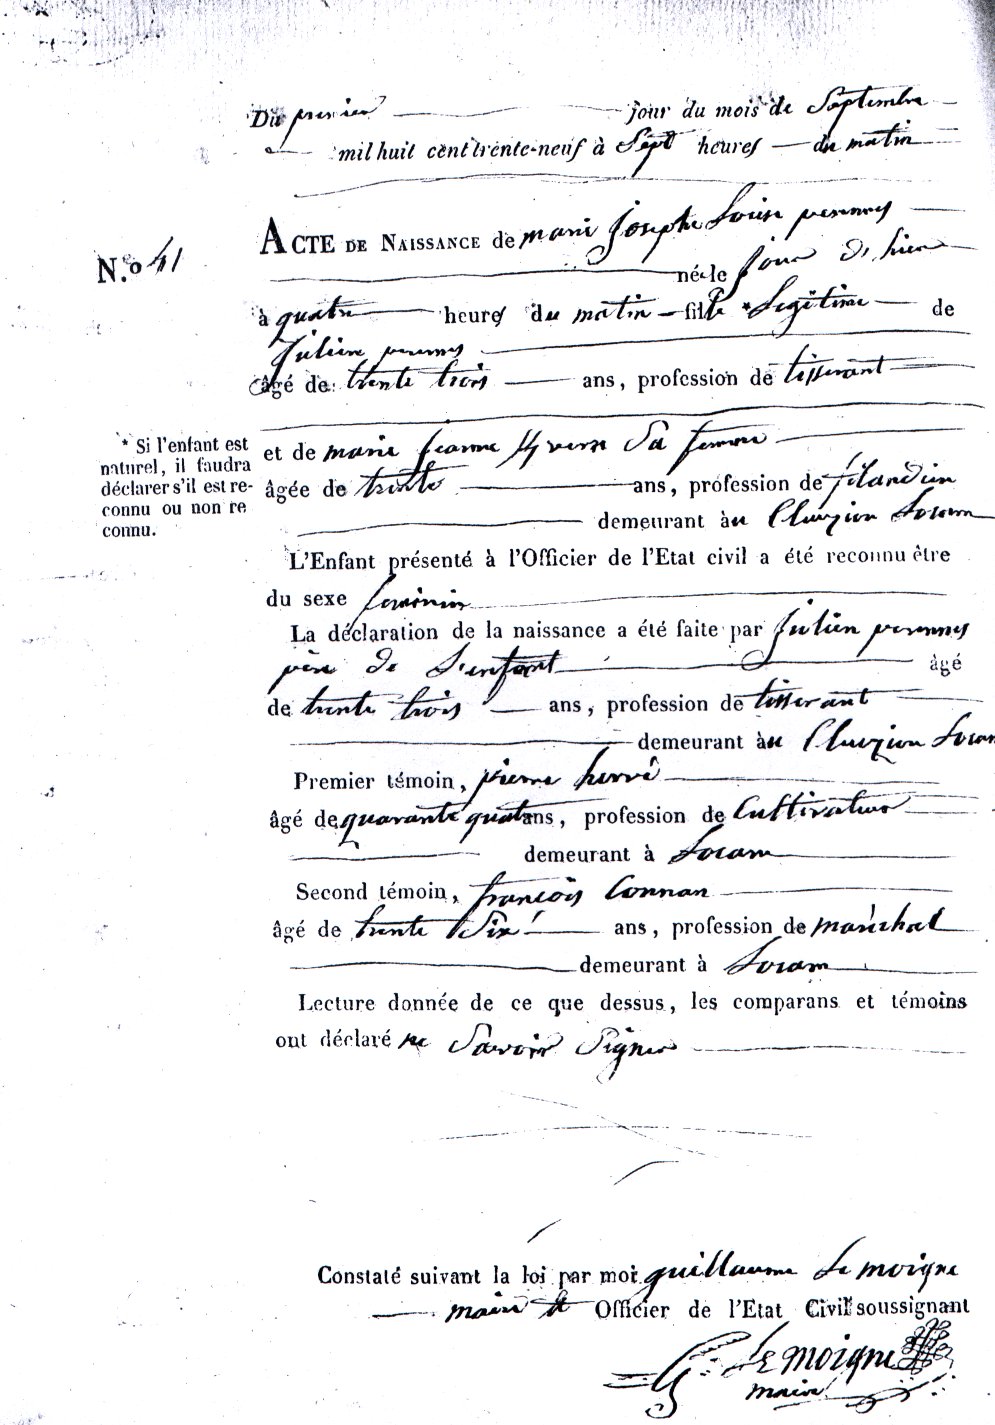 Du premier jour du mois de Septembre
mil huit cent trente-neuf à Sept heures du matin
N.o 41
ACTE DE NAISSANCE de marie josephe Louise perennes
né le jour d'hier
à quatre heures du matin fille * Legitime de
Julien perennes
âgé de trente trois ans, profession de tisserant
et de marie jeanne sa femme
âgée de trente ans, profession de filandier
demeurant au Locarn
* Si l'enfant est
naturel, il faudra
déclarer s'il est re-
connu ou non re
connu.
L'Enfant présenté à l'Officier de l'Etat civil a été reconnu être
du sexe feminin
La déclaration de la naissance a été faite par Julien perennes
père de L'enfant âgé
de trente trois ans, profession de tisserant
demeurant au Locarn
Premier témoin, pierre hervé
âgé de quarante quatre ans, profession de Cultivateur
demeurant à Locarn
Second témoin, françois Connan
âgé de trente Six ans, profession de maréchal
demeurant à Locarn
Lecture donnée de ce que dessus, les comparans et témoins
ont déclaré ne Savoir Signer
Constaté suivant la loi par moi guillaume Le moigne
maire et Officier de l'Etat Civil soussignant
G. Le moigne
maire